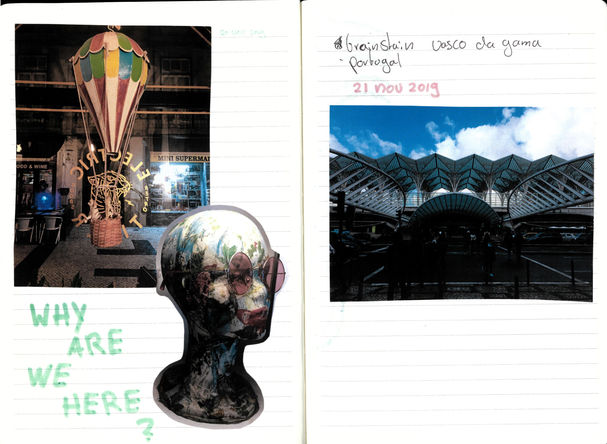 ELECTRIC
MINI SUPERMA
OD & WINE
WHY
ARE
WE
HERE
?
vasco da gama
portugal
21 nov 2019